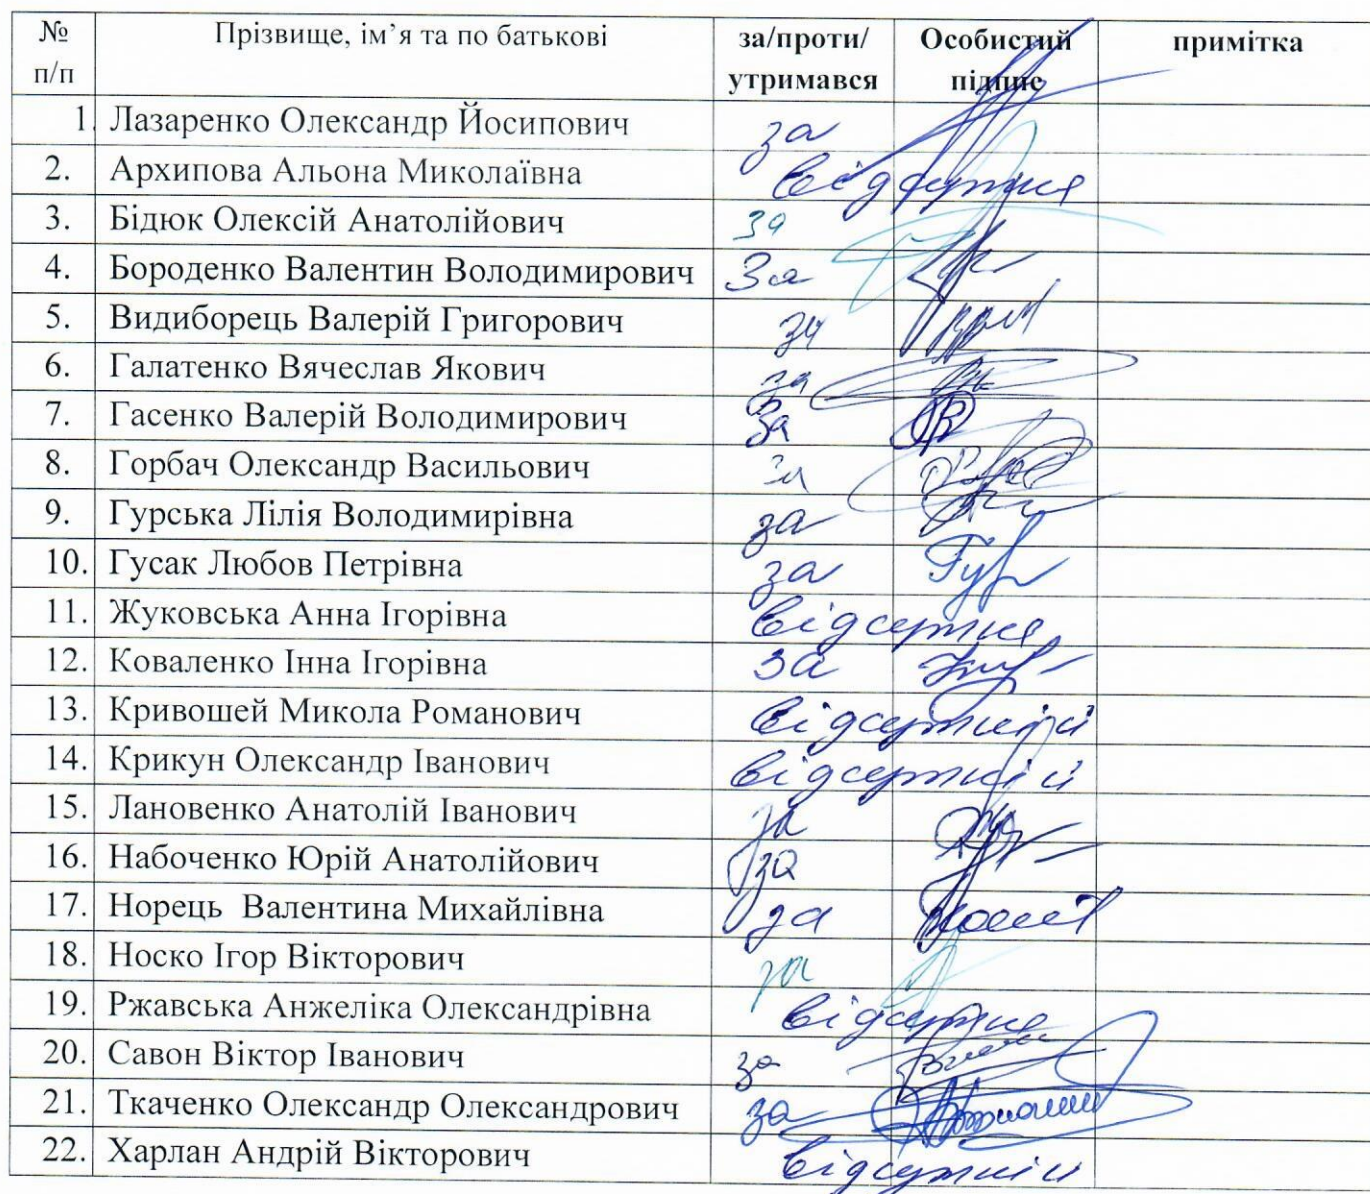 № п/п Прізвище, ім’я та по батькові за/проти/утримався Особистий підпис примітка
1. Лазаренко Олександр Йосипович за
2. Архипова Альона Миколаївна відсутня
3. Бідюк Олексій Анатолійович за
4. Бороденко Валентин Володимирович За
5. Видиборець Валерій Григорович за
6. Галатенко Вячеслав Якович за
7. Гасенко Валерій Володимирович За
8. Горбач Олександр Васильович за
9. Гурська Лілія Володимирівна за
10. Гусак Любов Петрівна за
11. Жуковська Анна Ігорівна відсутня
12. Коваленко Інна Ігорівна за
13. Кривошей Микола Романович відсутній
14. Крикун Олександр Іванович відсутній
15. Лановенко Анатолій Іванович за
16. Набоченко Юрій Анатолійович за
17. Норець Валентина Михайлівна за
18. Носко Ігор Вікторович за
19. Ржавська Анжеліка Олександрівна відсутня
20. Савон Віктор Іванович за
21. Ткаченко Олександр Олександрович за
22. Харлан Андрій Вікторович відсутній